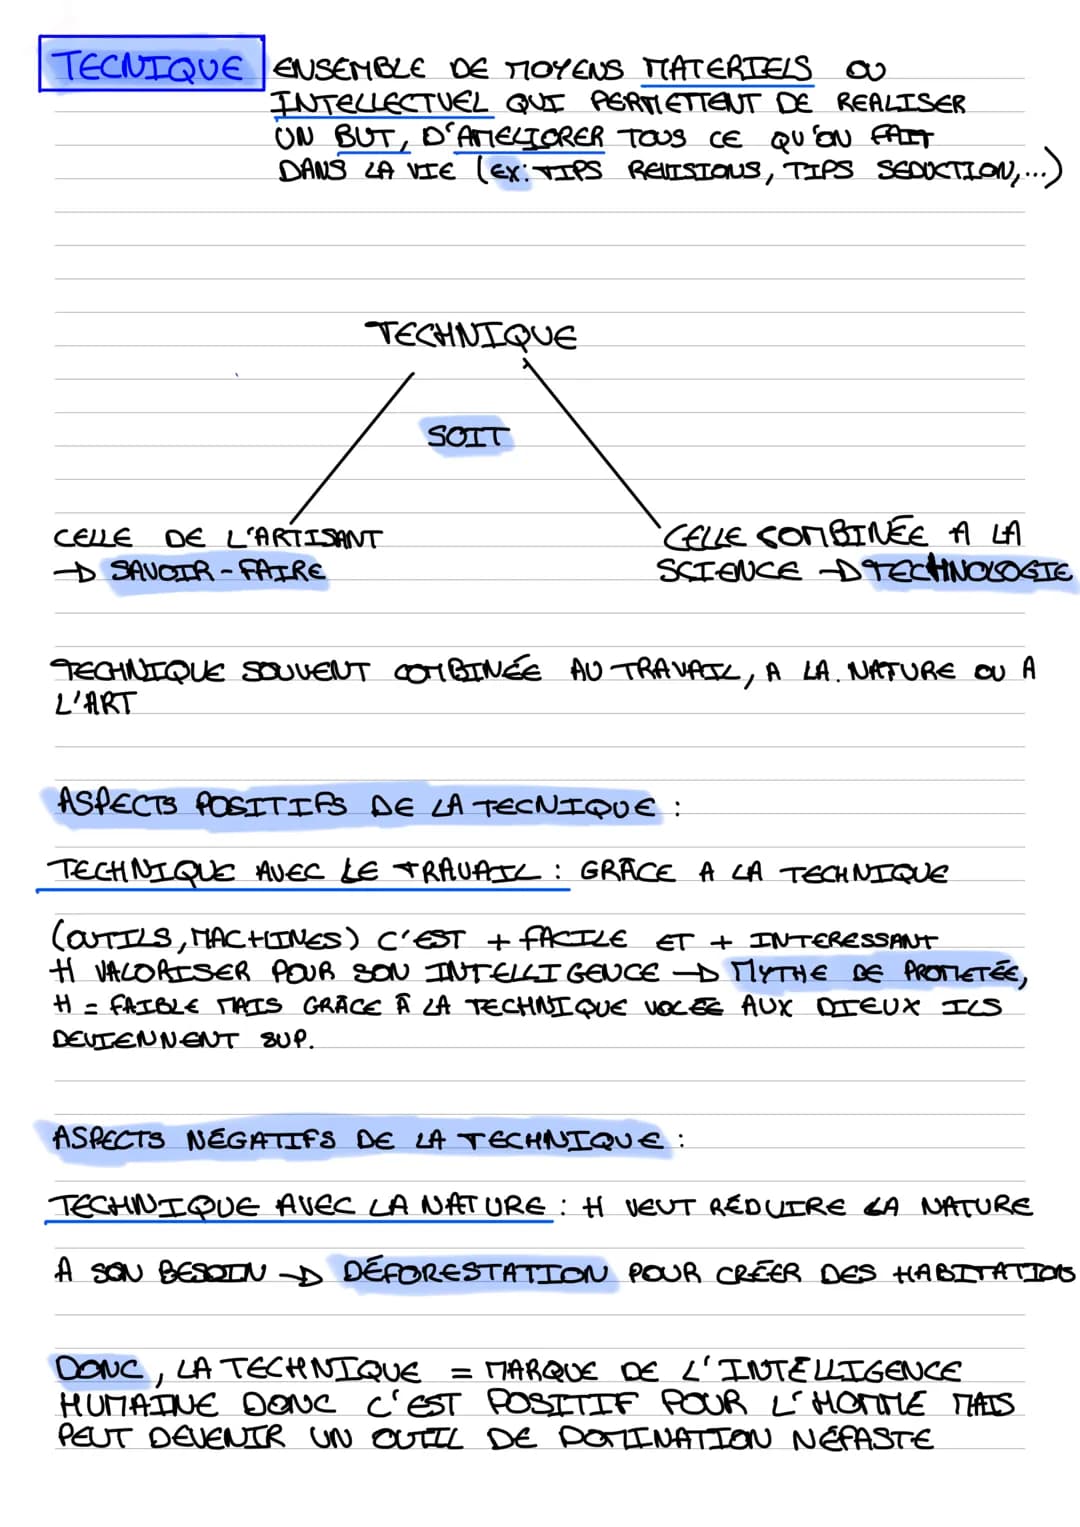 TECNIQUE ENSEMBLE DE MOYENS MATERIELS OU
INTELLECTUEL QUI PERMETTENT DE REALISER
UN BUT, D'AMELIORER TOUS CE QU'ON FAIT
DANS LA VIE (EX: TIPS REVISIONS, TIPS SEDUCTION,...)
TECHNIQUE
SOIT
CELLE DE L'ARTISANT
→ SAVOIR-FAIRE
CELLE COMBINÉE A LA
SCIENCE → TECHNOLOGIE
TECHNIQUE SOUVENT COMBINÉE AU TRAVAIL, A LA. NATURE OU A
L'ART
ASPECTS POSITIFS DE LA TECNIQUE :
TECHNIQUE AVEC LE TRAVAIL : GRÂCE A LA TECHNIQUE
(OUTILS, MACHINES) C'EST + FACILE ET + INTERESSANT
H VALORISER POUR SON INTELLIGENCE → MYTHE DE PROMETÉE,
H = FAIBLE MAIS GRÂCE Â LA TECHNIQUE VOLÉE AUX DIEUX ILS
DEVIENNENT SUP.
ASPECTS NÉGATIFS DE LA TECHNIQUE :
TECHNIQUE AVEC LA NATURE : H VEUT RÉDUIRE LA NATURE
A SON BESOIN → DÉFORESTATION POUR CRÉER DES HABITATIONS
DONC, LA TECHNIQUE = MARQUE DE L'INTELLIGENCE
HUMAINE DONC C'EST POSITIF POUR L'HOMME MAIS
PEUT DEVENIR UN OUTIL DE DOMINATION NÉFASTE